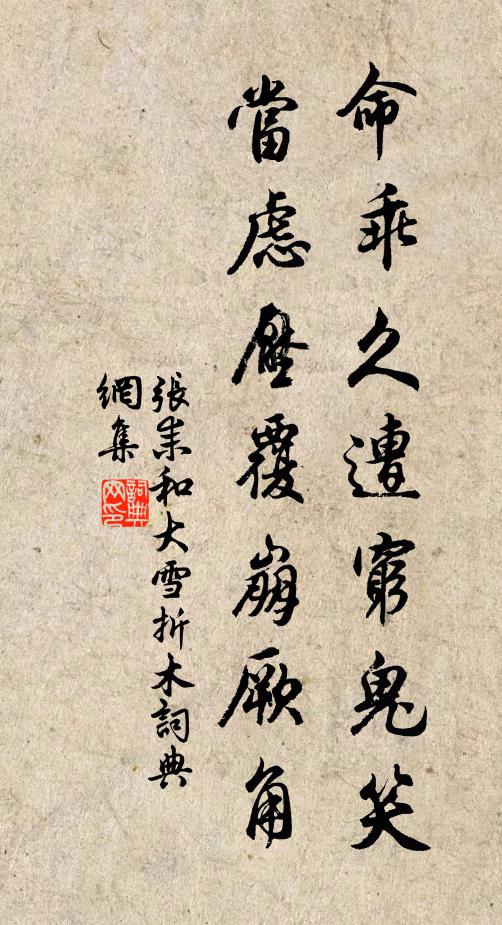 命乖久遭窮鬼笑
當慮壓覆崩厥角
張耒和大雪折木詞典
網集
詞典網印